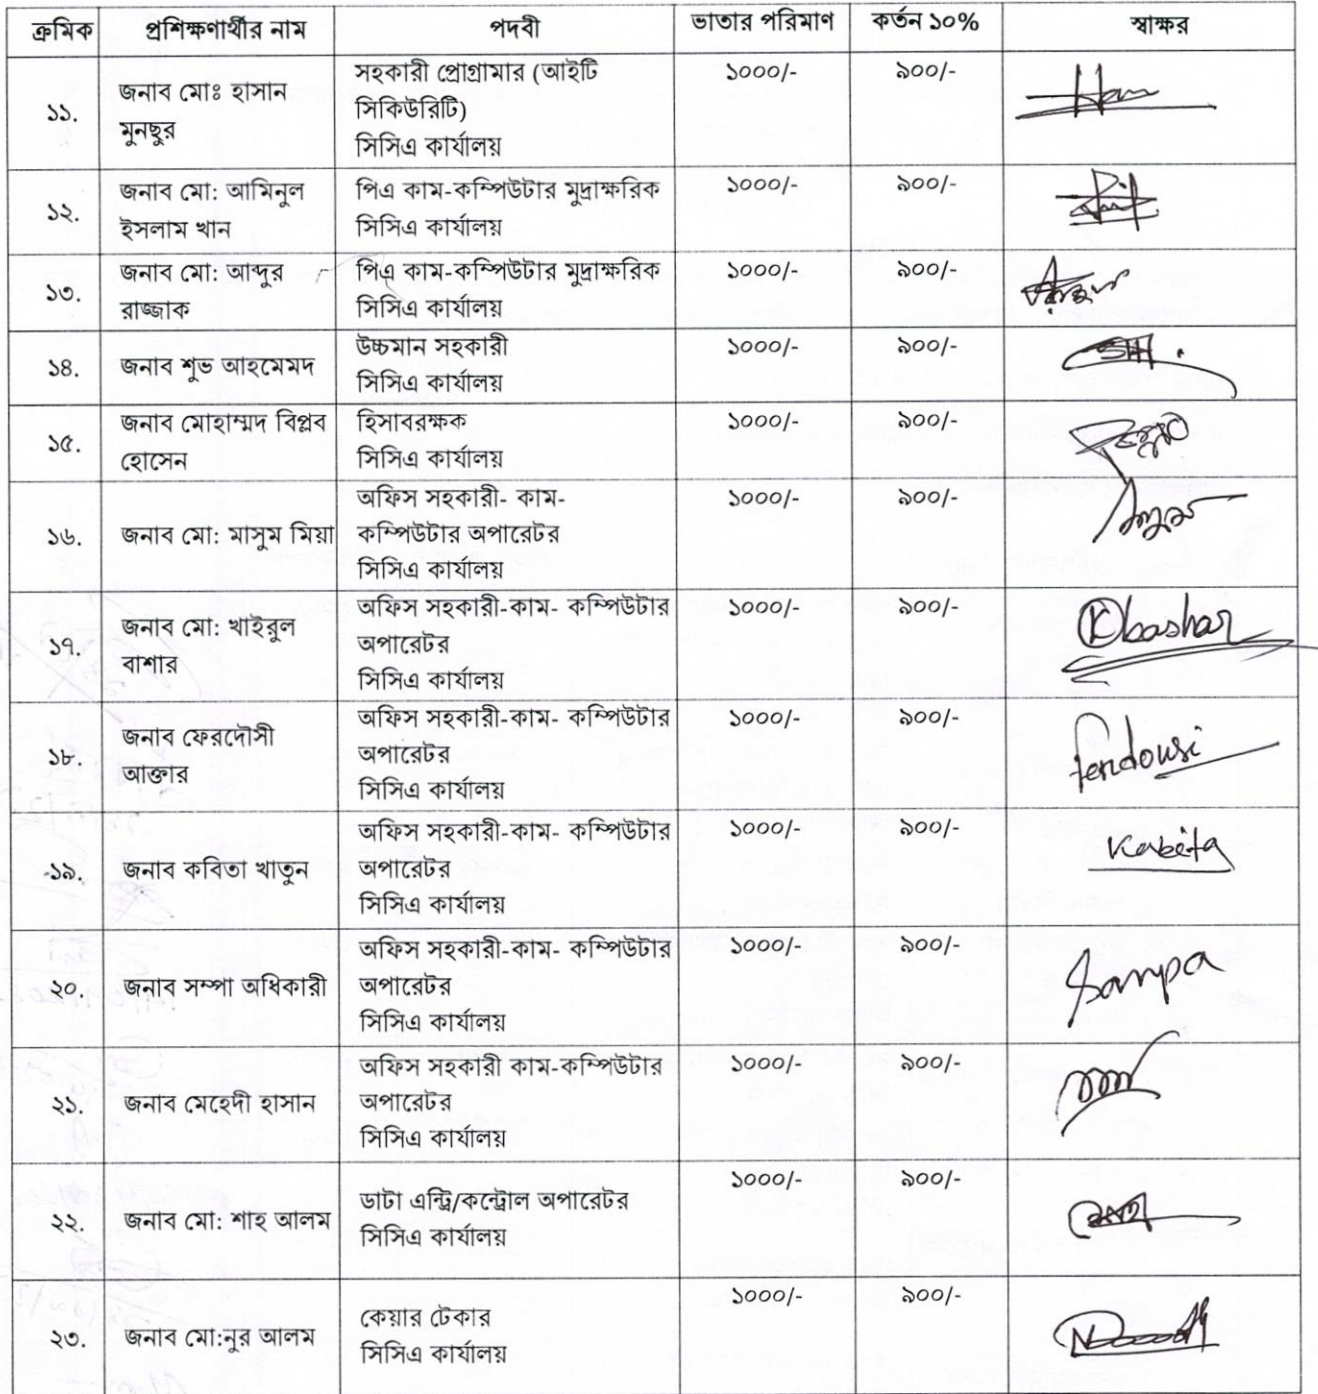 ক্রমিক প্রশিক্ষণার্থীর নাম পদবী ভাতার পরিমাণ কর্তন ১০% স্বাক্ষর
১১. জনাব মোঃ হাসান মুনছুর সহকারী প্রোগ্রামার (আইটি সিকিউরিটি) সিসিএ কার্যালয় ১০০০/- ৯০০/-
১২. জনাব মো: আমিনুল ইসলাম খান পিএ কাম-কম্পিউটার মুদ্রাক্ষরিক সিসিএ কার্যালয় ১০০০/- ৯০০/-
১৩. জনাব মো: আব্দুর রাজ্জাক পিএ কাম-কম্পিউটার মুদ্রাক্ষরিক সিসিএ কার্যালয় ১০০০/- ৯০০/-
১৪. জনাব শুভ আহমেমদ উচ্চমান সহকারী সিসিএ কার্যালয় ১০০০/- ৯০০/-
১৫. জনাব মোহাম্মদ বিপ্লব হোসেন হিসাবরক্ষক সিসিএ কার্যালয় ১০০০/- ৯০০/-
১৬. জনাব মো: মাসুম মিয়া অফিস সহকারী- কাম- কম্পিউটার অপারেটর সিসিএ কার্যালয় ১০০০/- ৯০০/-
১৭. জনাব মো: খাইরুল বাশার অফিস সহকারী-কাম- কম্পিউটার অপারেটর সিসিএ কার্যালয় ১০০০/- ৯০০/- Kbashar
১৮. জনাব ফেরদৌসী আক্তার অফিস সহকারী-কাম- কম্পিউটার অপারেটর সিসিএ কার্যালয় ১০০০/- ৯০০/- ferdowsi
১৯. জনাব কবিতা খাতুন অফিস সহকারী-কাম- কম্পিউটার অপারেটর সিসিএ কার্যালয় ১০০০/- ৯০০/- Kabita
২০. জনাব সম্পা অধিকারী অফিস সহকারী-কাম- কম্পিউটার অপারেটর সিসিএ কার্যালয় ১০০০/- ৯০০/- Sampa
২১. জনাব মেহেদী হাসান অফিস সহকারী কাম-কম্পিউটার অপারেটর সিসিএ কার্যালয় ১০০০/- ৯০০/-
২২. জনাব মো: শাহ আলম ডাটা এন্ট্রি/কন্ট্রোল অপারেটর সিসিএ কার্যালয় ১০০০/- ৯০০/-
২৩. জনাব মো:নুর আলম কেয়ার টেকার সিসিএ কার্যালয় ১০০০/- ৯০০/-